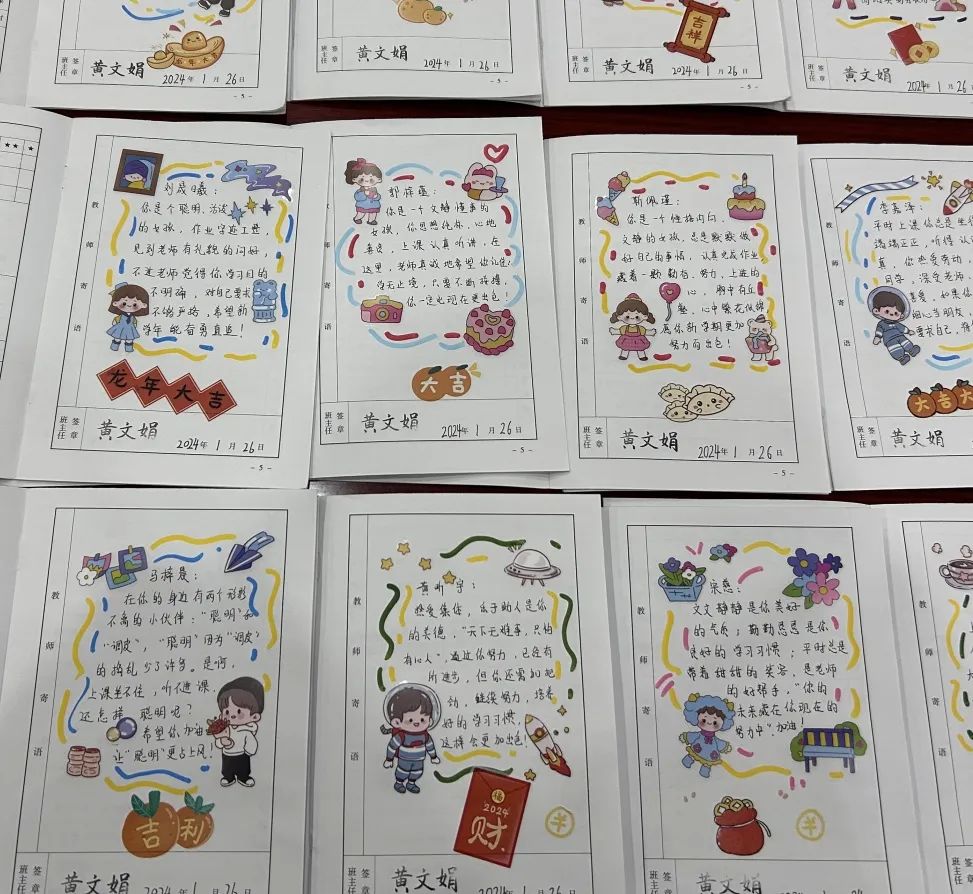 吉祥
龙年大吉
班主任
签章
黄文娟
2024年1月26日
- 5 -
班主任
签章
黄文娟
2024年1月26日
班主任
签章
黄文娟
2024年1月26日
- 5 -
班主任
签章
黄文娟
2024年1月26
教师寄语
刘晟曦:
你是个聪明、活泼
的女孩,作业字迹工整,
见到老师有礼貌的问好,
不过老师觉得你学习目的
不明确,对自己要求
不够严格,希望新
学年能奋勇直追!
龙年大吉
班主任
签章
黄文娟
2024年1月26日
- 5 -
教师寄语
你是一个文静懂事的
女孩,你思想纯朴,心地
善良,上课认真听讲,在
这里,老师真诚地希望你记住:
学无止境,只要不断拼搏,
你一定也现在更出色!
大吉
班主任
签章
黄文娟
2024年1月26日
- 5 -
教师寄语
靳佩瑾:
你是一个性格内向、
文静的女孩,总是默默做
好自己的事情,认真完成作业
藏着一颗勤奋、努力、上进的
心,胸中有丘
壑,心中繁花似锦
愿你新学期更加
努力而出色!
班主任
签章
黄文娟
2024年1月26日
- 5 -
教师寄语
平时上课你总是坐得
端端正正,听得认
真,你热爱劳动,
同学,深受老师
喜爱,如果你
细心当朋友,
要求自己,
大吉大
班主任
签章
黄文娟
2024年1月26日
教师寄语
马梓晟:
在你的身边有两个形影
不离的小伙伴:“聪明”和
“调皮”,“聪明”因为“调皮”
的捣乱少了许多。是啊,
上课坐不住,听不进课,
还怎样聪明呢?
希望你加油
让“聪明”更占上风.
吉利
班主任
签章
黄文娟
2024年1月26日
教师寄语
黄昕宇:
热爱集体,乐于助人是你
的美德,“天下无难事,只怕
有心人”,通过你努力,已经有
所进步,但你还需加把
劲,继续努力,培养
好的学习习惯,
这样会更加出色!
福
2024
财
班主任
签章
黄文娟
2024年1月26日
教师寄语
宋慈:
文文静静是你美好
的气质;勤勤恳恳是你
良好的学习习惯;平时总是
带着甜甜的笑容,是老师
的好帮手,“你的
未来藏在你现在的
努力中”加油!
班主任
签章
黄文娟
2024